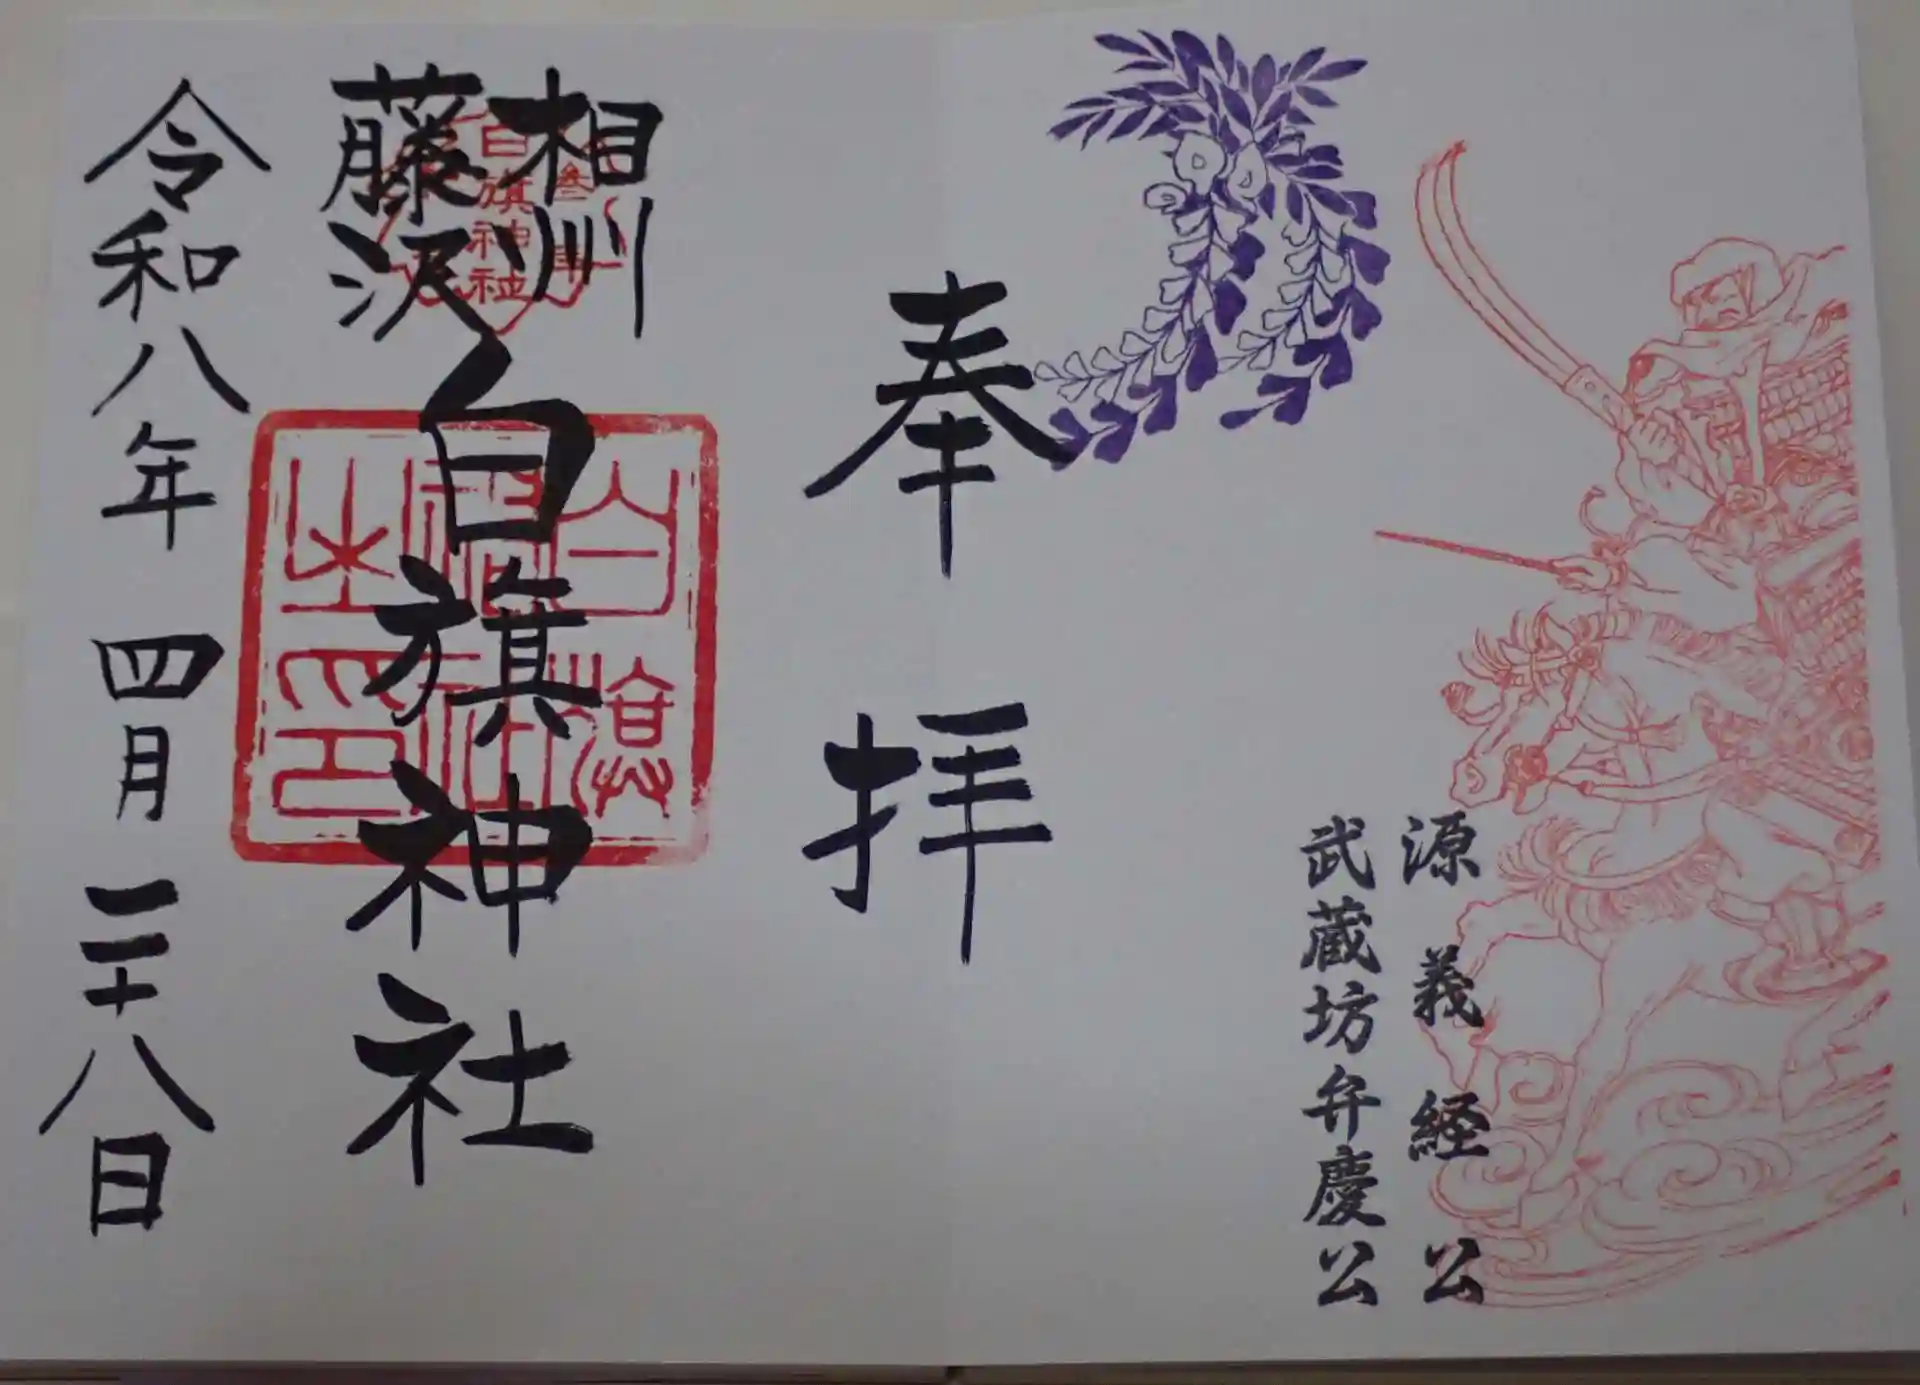 源義経公
武蔵坊弁慶公
奉拝
相州
藤沢
白旗神社
白旗神社
白旗
神社
之印
令和八年四月二十八日